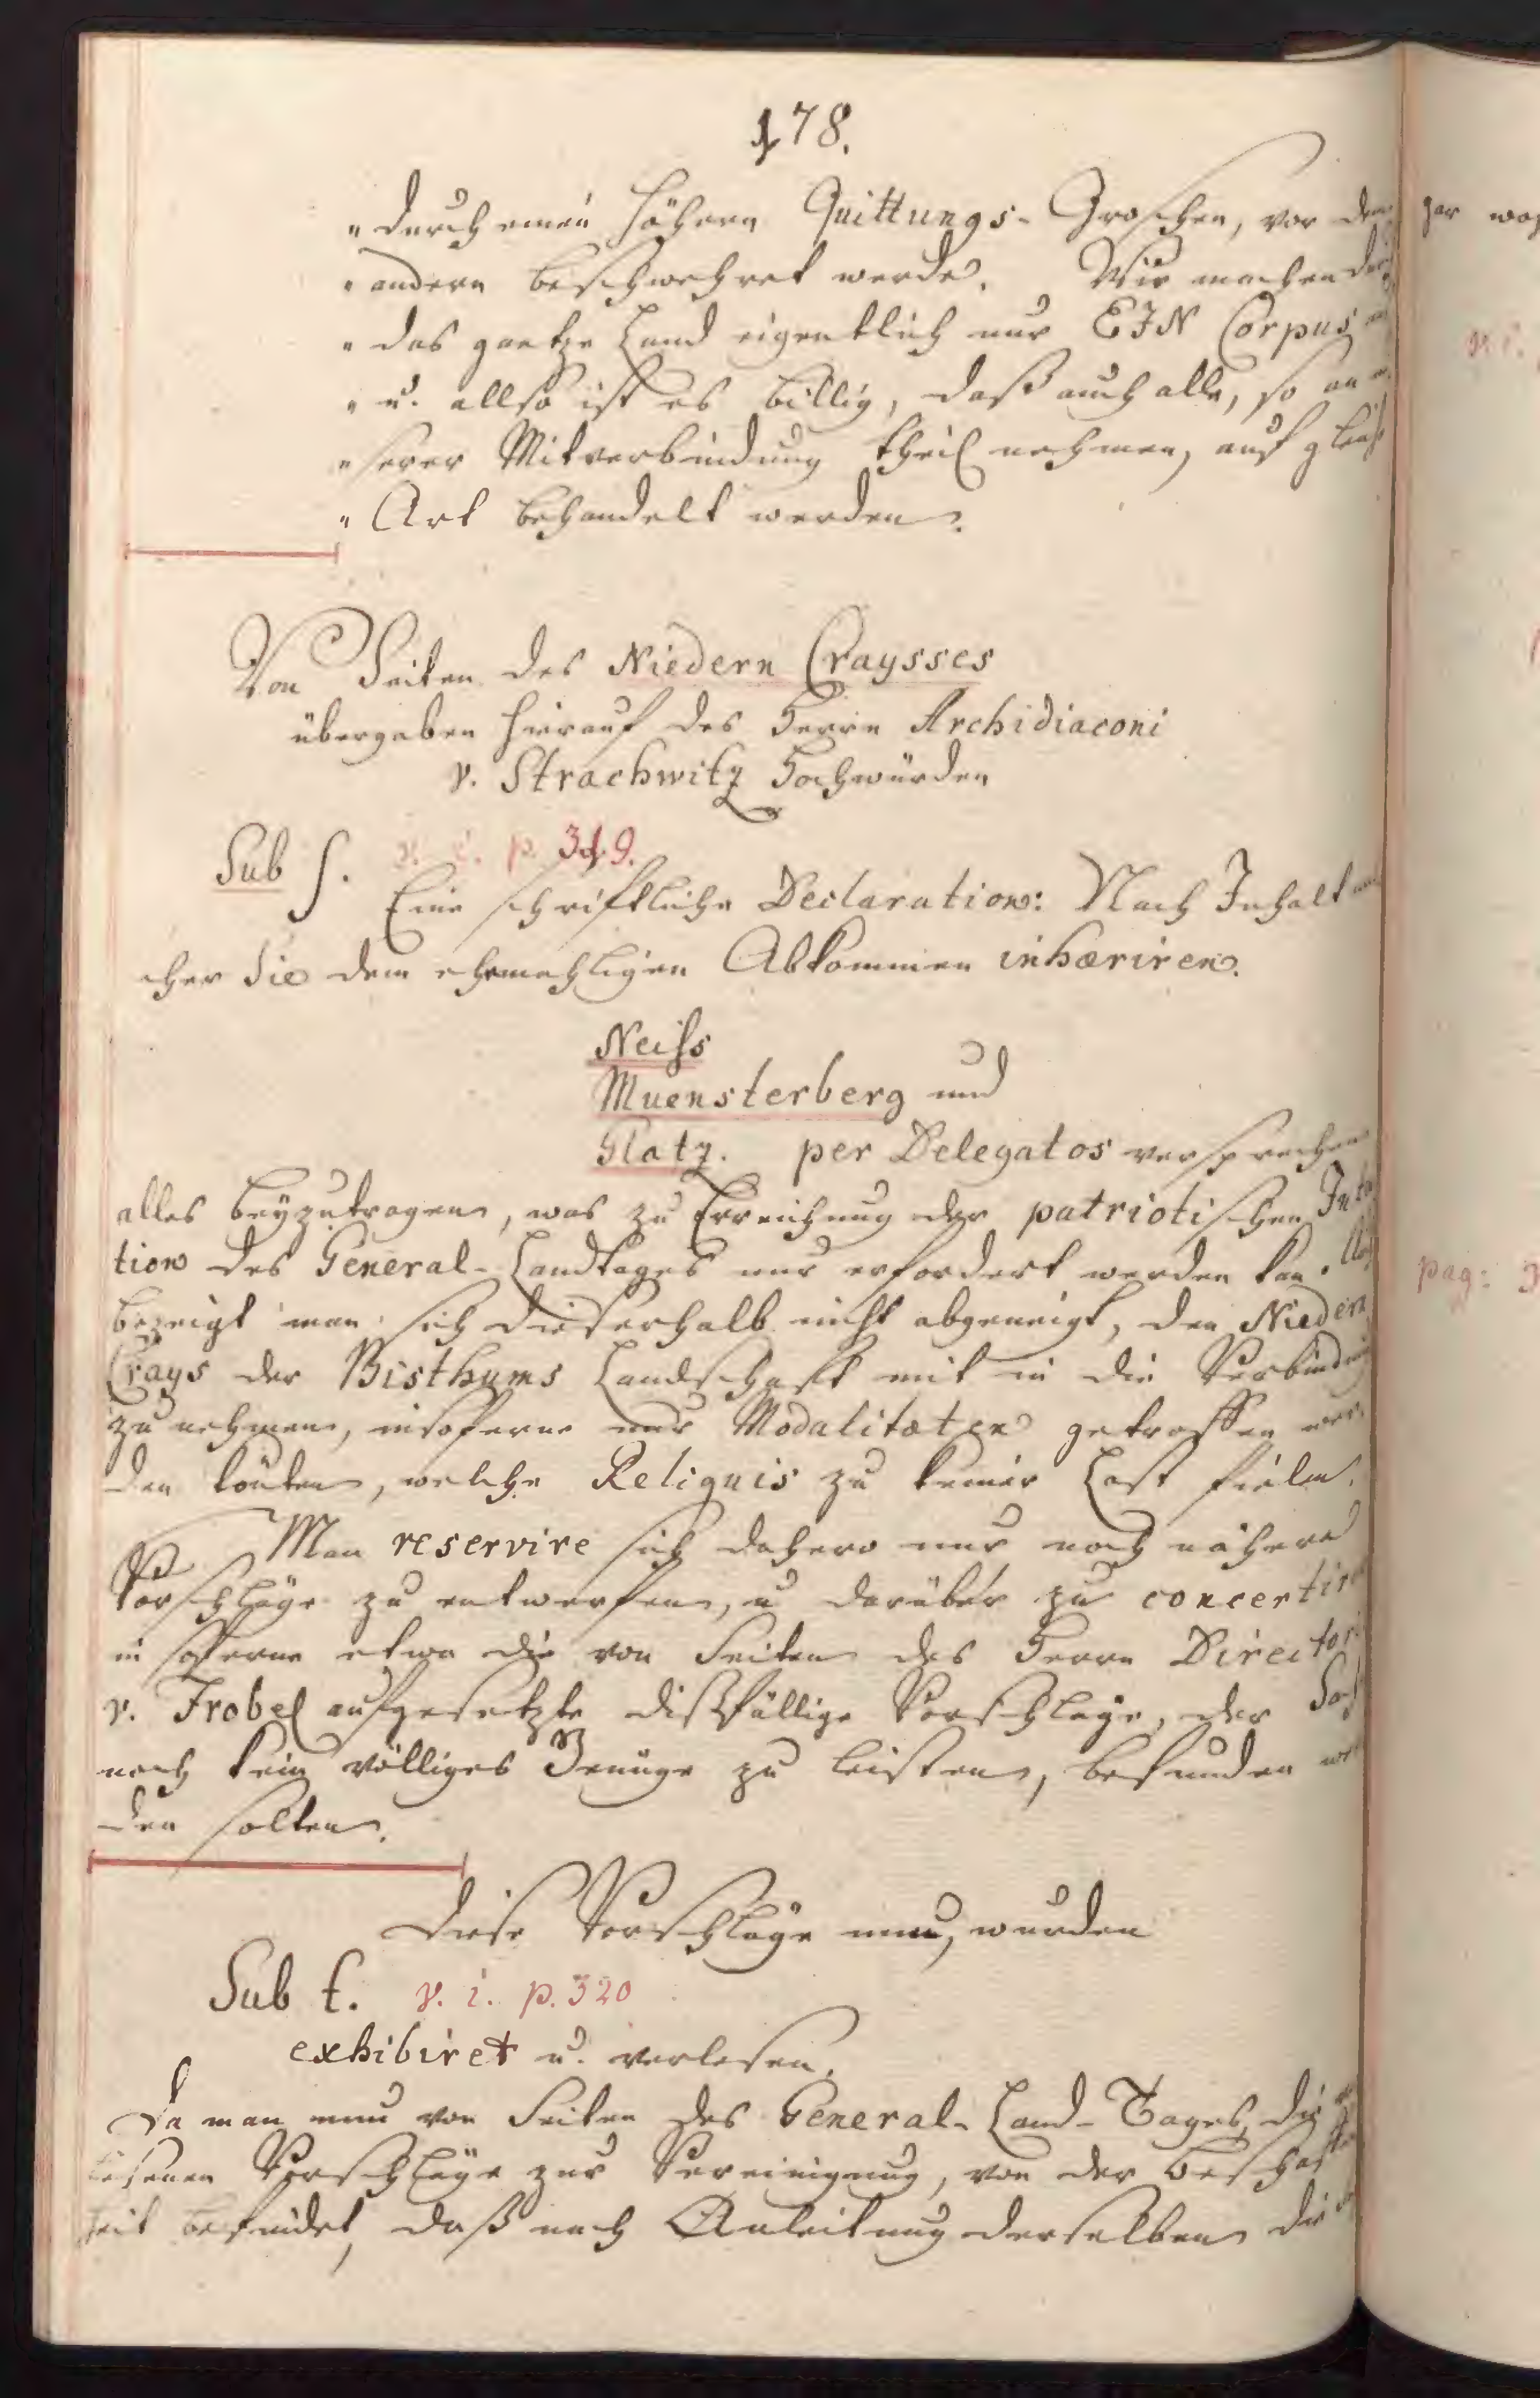 178.
"durch einen höhern Quittungs-Groschen, vor dem
"andern beschwehret werde. Wir machen
"das gantze Land eigentlich nur EIN Corpus
"u. allso ist es billig, daß auch alle, so an
"serer Mitverbindung theil nehmen, auf gleiche
"Art behandelt werden.
Von Seiten des Niedern Craysses
übergaben hierauf des Herrn Archidiaconi
v. Strachwitz Hochwürden
Sub s. v. i. p. 319.
Eine schriftliche Declaration: Nach Inhalt
cher Sie dem ehemahligen Abkommen inhæriren.
Neiss
Muensterberg und
Glatz. per Delegatos versprechen
alles beyzutragen, was zu Erreichung der patriotischen Inten
tion des General-Landtages nur erfordert werden kan.
bezeigt man sich dieserhalb nicht abgeneigt, den Niedern
Crays der Bisthums Landschafft mit in die Verbindung
zu nehmen, insoferne nur Modalitæten getroffen wer
den könten, welche Reliquis zu keiner Last fielen.
Man reservire sich dahero nur noch nähere
Vorschläge zu entwerffen, u darüber zu concertiren
in soferne etwa die von Seiten des Herrn Directoris
v. Frobel aufgesetzte dißfällige Vorschläge, der Sache
noch kein völliges Genüge zu leisten, befunden wer
den solten.
Diese Vorschläge nun, wurden
Sub t. v. i. p. 320
exhibiret u. verlesen.
Da man nun von Seiten des General-Land-Tages, die
lesenen Vorschläge zur Vereinigung, von der Beschaffen
heit befindet, daß nach Anleitung derselben die
gar
pag: